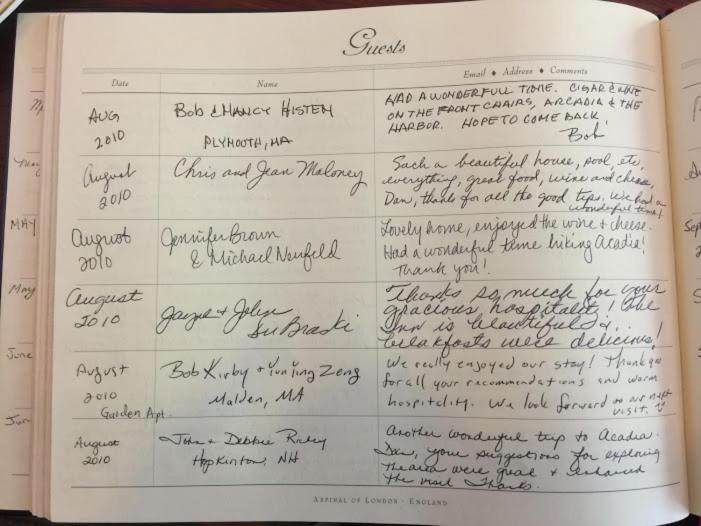 Guests
Date
Name
Email ♦ Address ♦ Comments
AUG
2010
Bob & NANCY HISTEN
PLYMOUTH, MA
HAD A WONDERFULL TIME. CIGAR & WINE
ON THE FRONT CHAIRS, ARCADIA & THE
HARBOR. HOPE TO COME BACK!
Bob
August
2010
Chris and Jean Maloney
Such a beautiful house, pool, etc,
everything, great food, wine and cheese,
Dan, thanks for all the good tips. We had a
wonderful time!
August
2010
Jennifer Brown
& Michael Neufeld
Lovely home, enjoyed the wine & cheese.
Had a wonderful time hiking Acadia!
Thank you!
August
2010
Jayne & John
Thanks so much for your
gracious hospitality! The
Inn is beautiful &
breakfasts were delicious!
August
2010
Garden Apt.
Bob Kirby + Yun Ying Zeng
Malden, MA
We really enjoyed our stay! Thank you
for all your recommendations and warm
hospitality. We look forward to our next
visit.
August
2010
John & Debbie
Hopkinton, NH
Another wonderful trip to Acadia.
Dan, your suggestions for exploring
the area were great & enhanced
the visit Thanks.
ASPINAL OF LONDON · ENGLAND
MAY
May
June
Jun